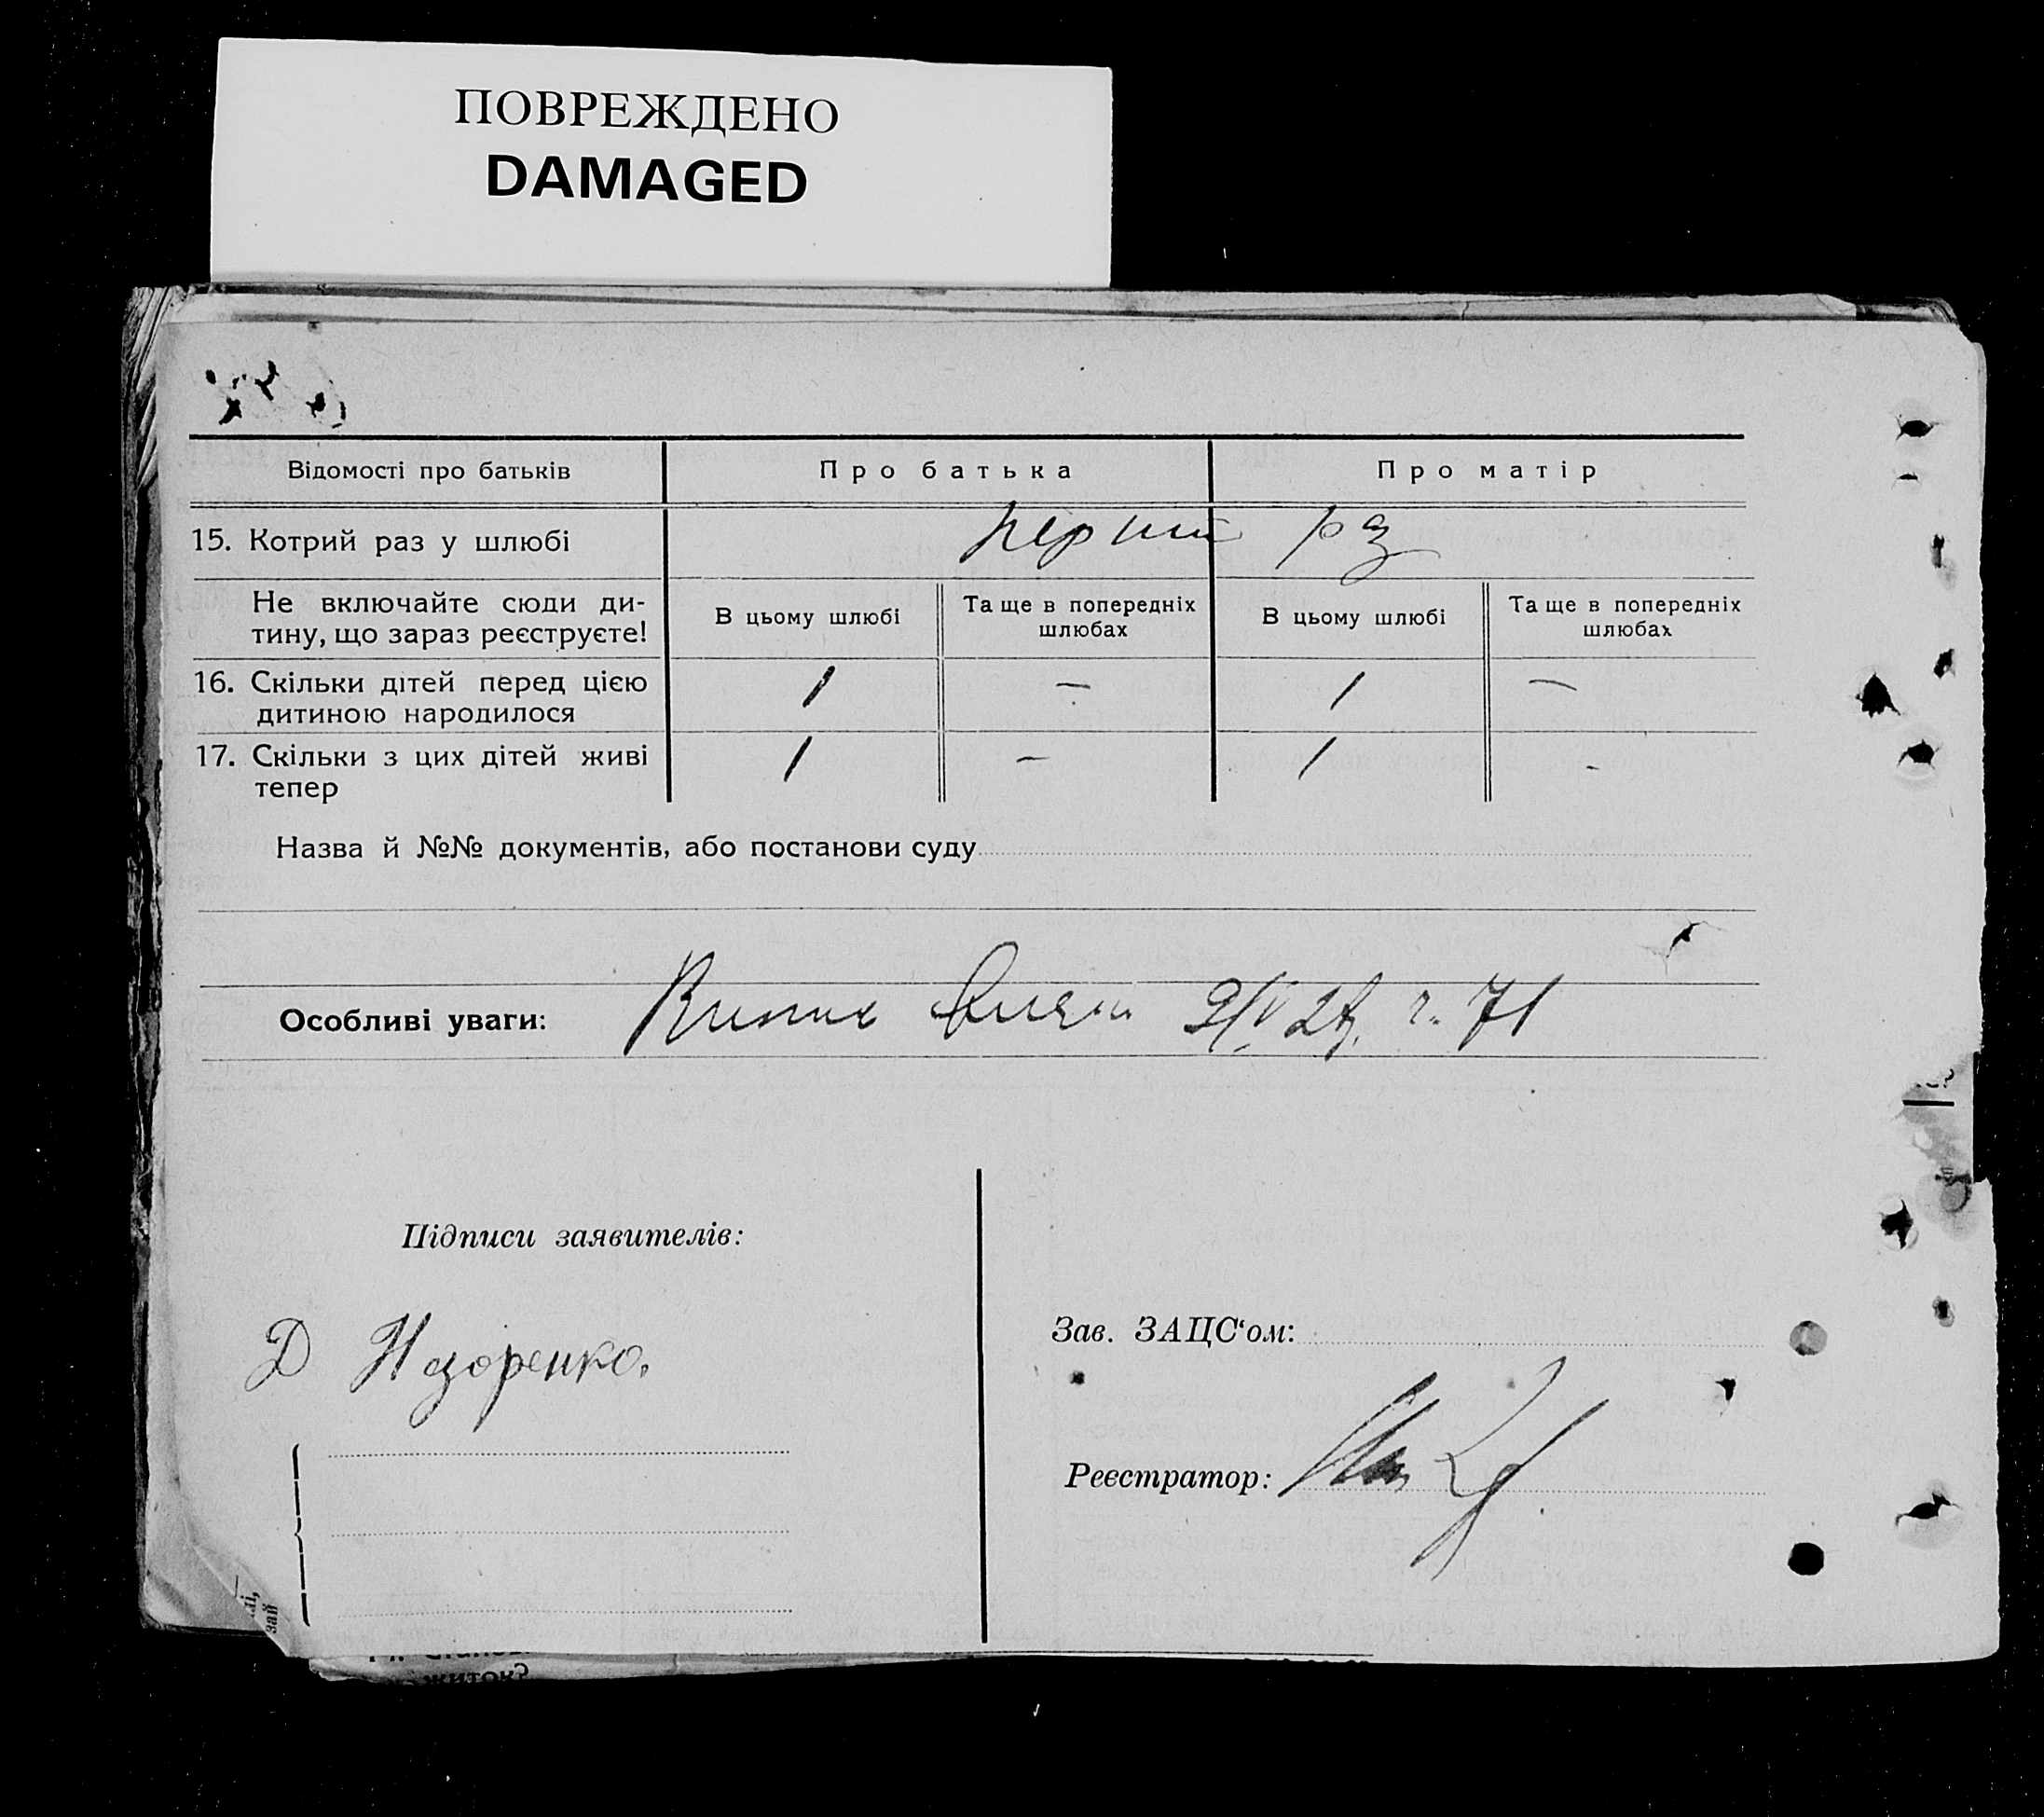 ПОВРЕЖДЕНО
DAMAGED
Відомості про батьків
Про батька
Про матір
15. Котрий раз у шлюбі
перший раз
Не включайте сюди ди-
тину, що зараз реєструєте!
В цьому шлюбі
Та ще в попередніх
шлюбах
В цьому шлюбі
Та ще в попередніх
шлюбах
16. Скільки дітей перед цією
дитиною народилося
1 — 1 —
17. Скільки з цих дітей живі
тепер
1 — 1 -
Назва й №№ документів, або постанови суду
Особливі уваги:
ч. 71
Підписи заявителів:
Д Назоренко.
Зав. ЗАЦС‘ом:
Реєстратор:
зай